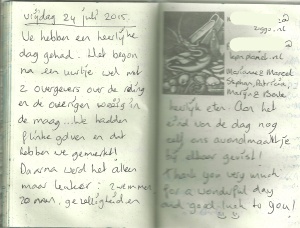 vrijdag 24 juli 2015.
We hebben een heerlijke
dag gehad. Het begon
na een uurtje wel met
2 overgevers over de reling
en de overigen weeïg in
de maag... We hadden
flinke golven en dat
hebben we gemerkt!
Daarna werd het alleen
maar leuker: zwemmen
zonnen, gezelligheid en
ziggo.nl
Marianne & Marcel
Stephan, Patricia,
heerlijk eten. Aan het
eind van de dag nog
zelfs ons avondmaaltje
bij elkaar gevist!
Thank you very much
for a wonderful day
and good luck to you!